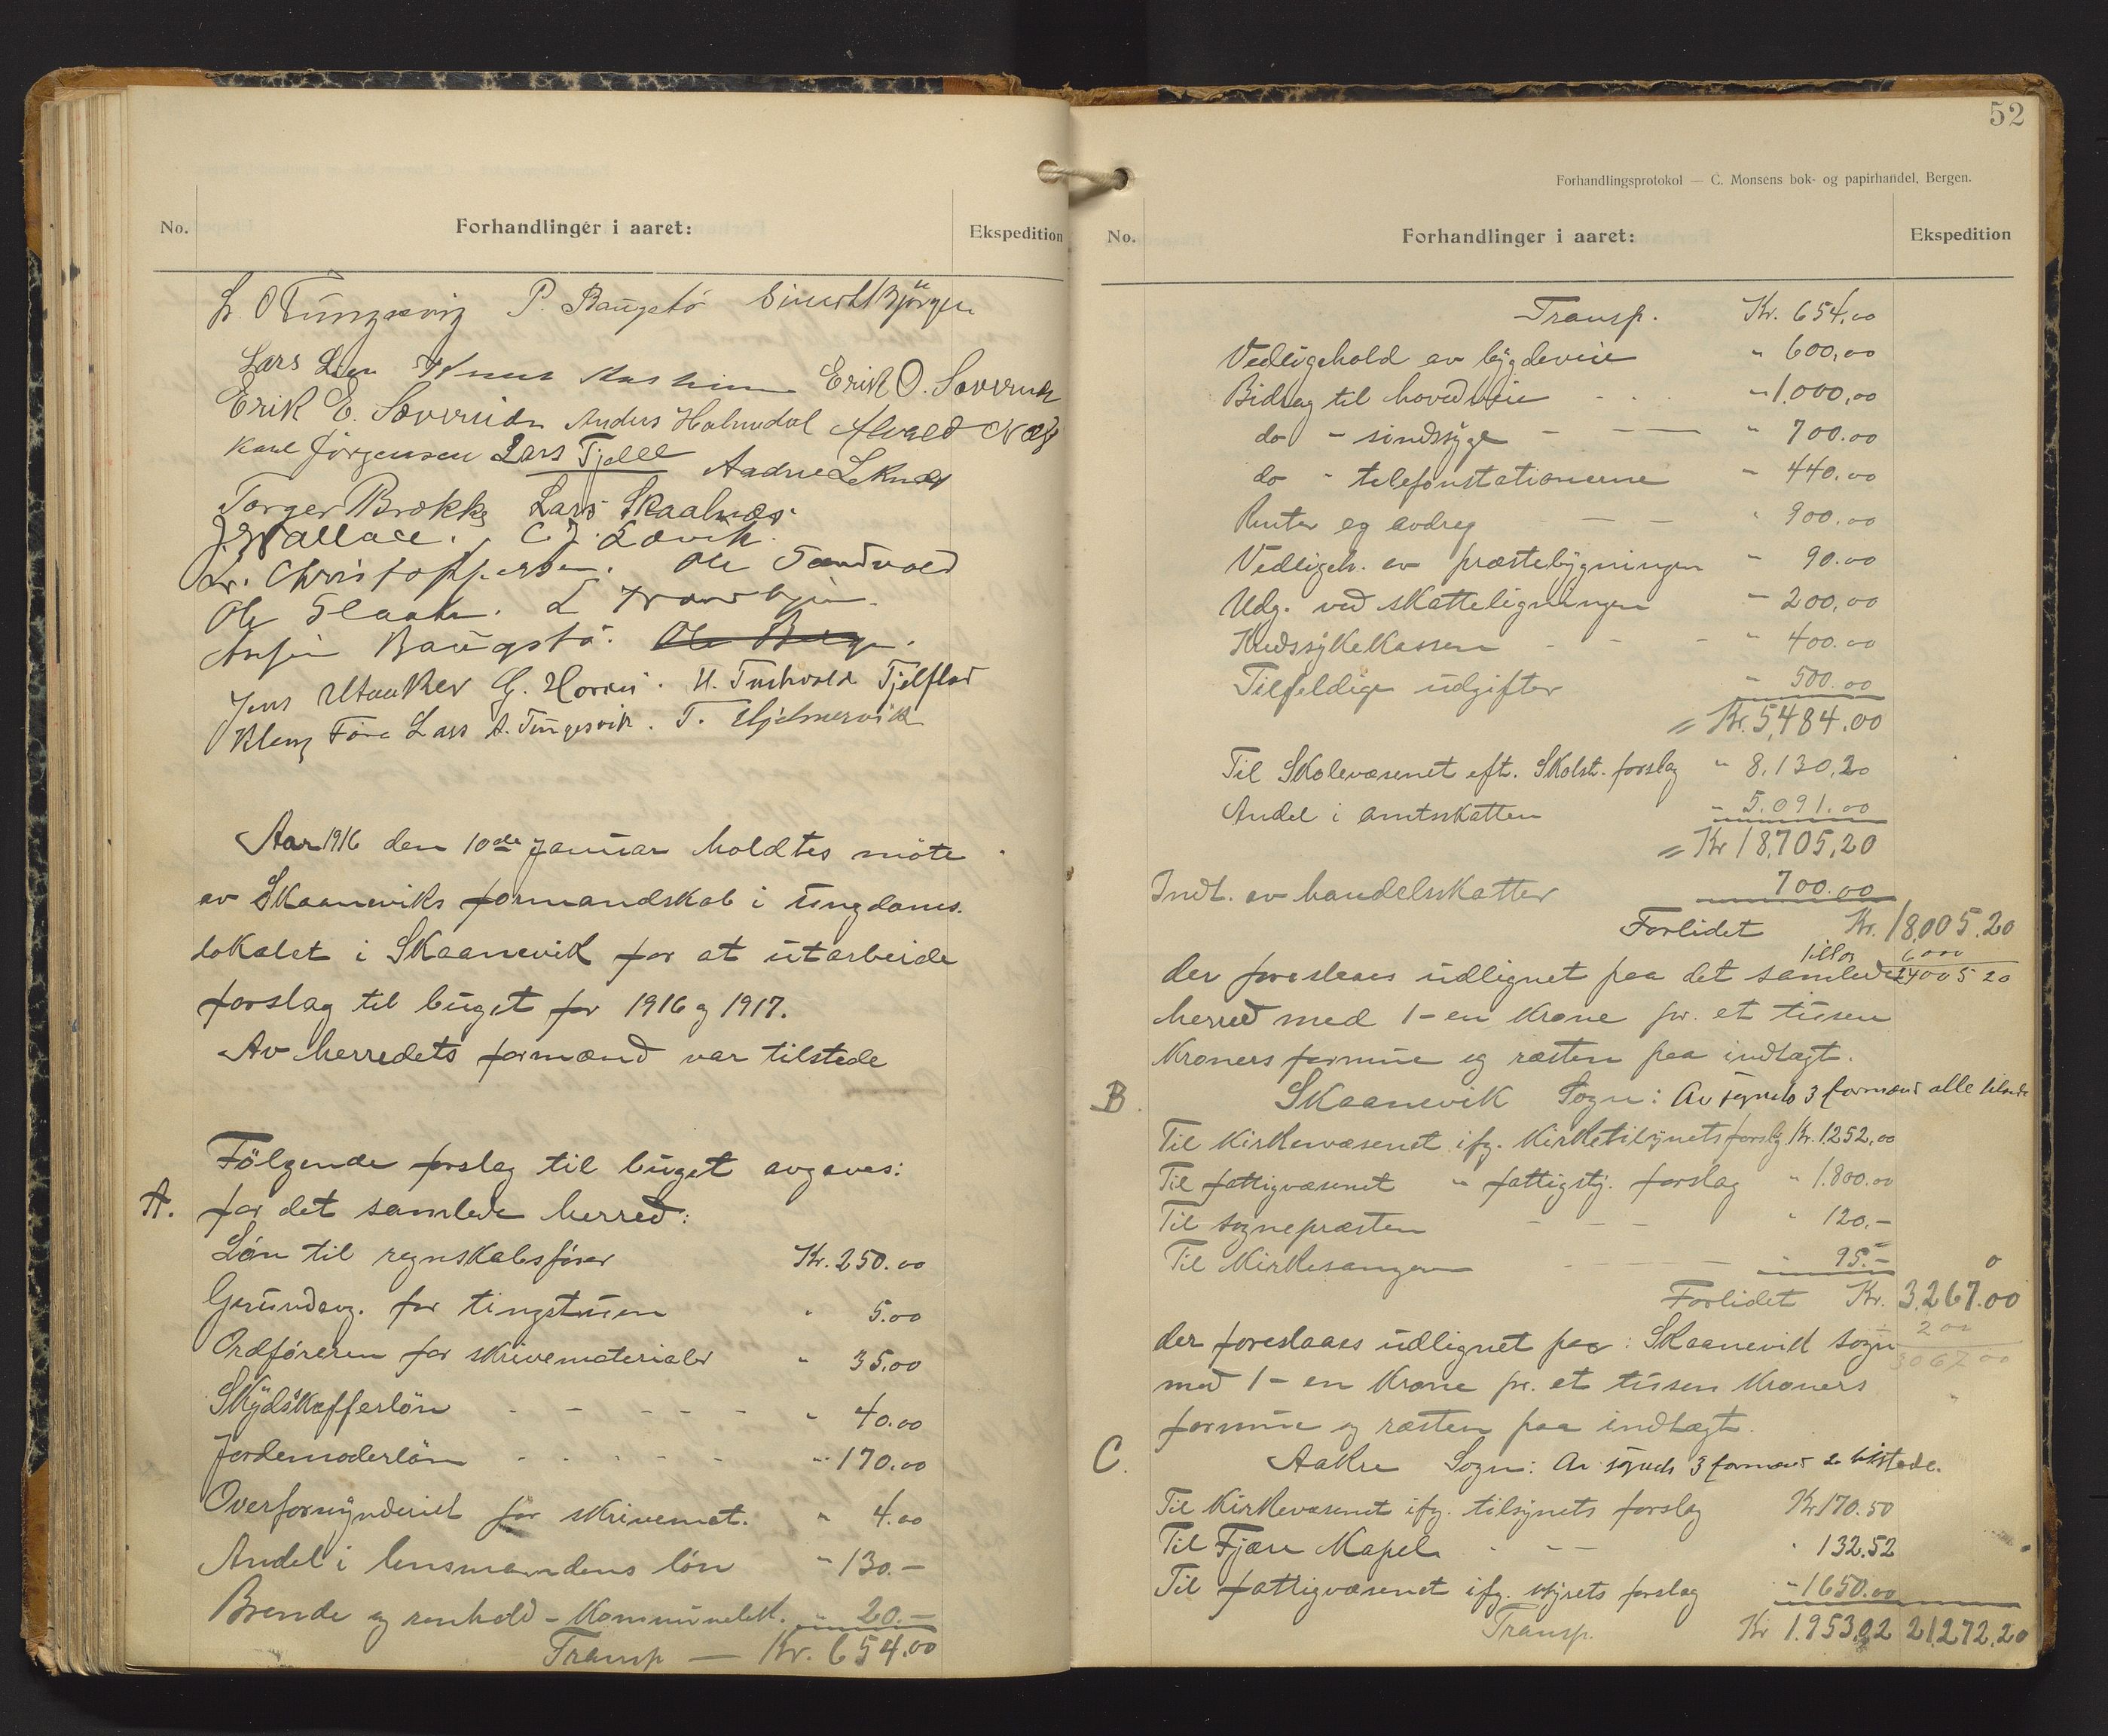 No.
Forhandlinger i aaret:
Ekspedition
P. Baugstø
Lars Lien Erik O. Sævereide
Erik E. Sævereide Anders Holmedal
Karl Jørgensen Lars Fjelle
Torger Brekke Lars Skaalnæs
J. Wallace.
L. Christophersen. Ole Sandvold
Baugstø. Ole Berge.
Jens Utaaker
Lars A. Tungesvik.
Aar 1916 den 10de Januar holdtes møte
av Skaaneviks formandskab i ungdoms-
lokalet i Skaanevik for at utarbeide
forslag til buget for 1916 og 1917.
Av herredets formænd var tilstede
Følgende forslag til buget avgaves:
A. for det samlede herred:
Løn til regnskabsfører Kr. 250.00
Grundavg. for tingstuen " 5.00
Ordføreren for skrivematerialer " 35.00
Skydskafferløn - - - - - " 40.00
Jordemoderløn - - - - - " 170.00
Overformynderiet for skrivemat. " 4.00
Andel i lensmandens løn " 130.-
Brende og renhold - Kommunelok. " 20.-
Transp — Kr. 654.00
52
Forhandlingsprotokol — C. Monsens bok- og papirhandel, Bergen.
No.
Forhandlinger i aaret:
Ekspedition
Transp. Kr. 654.00
Vedligehold av bygdeveie " 600,00
Bidrag til hovedveie - - - " 1.000,00
do - sindssyge - - — " 700.00
do - telefonstationerne " 440.00
Renter og avdrag - - " 900.00
Vedligeh. av præstebygningen " 90.00
Udg. ved skatteligningen " 200,00
Kredssykekassen - - - " 400.00
Tilfeldige udgifter " 500.00
= Kr. 5,484.00
Til Skolevæsenet eft. Skolst. forslag " 8.130,20
Andel i amtsskatten " 5.091.00
= Kr 18,705,20
Indt. av handelsskatter 700.00
Forlidet Kr. 18,005.20
6000
der foreslaaes udlignet paa det samlede 24005 20
herred med 1 - en Krone pr. et tusen
Kroners formue og resten paa indtægt.
B. Skaanevik Sogn: Av sognets 3 formænd alle tilstede
Til Kirkevæsenet ifg. Kirketilsynets forslag Kr. 1252,00
Til fattigvæsenet " fattigstyr. forslag " 1.800.00
Til sognepræsten - - - " 120.-
Til Kirkesangeren - - - - " 95.-
Forlidet Kr. 3.267.00
200
der foreslaaes udlignet paa: Skaanevik sogn 3067 00
med 1 - en Krone pr. et tusen Kroners
formue og resten paa indtægt.
C. Aakre Sogn: Av sognets 3 formænd 2 tilstede.
Til Kirkevæsenet ifg. tilsynets forslag Kr 170.50
Til Fjære Kapel - - - " 132.52
Til fattigvæsenet ifg. styrets forslag " 1650.00
Transp. Kr 1.953,02 21,272.20